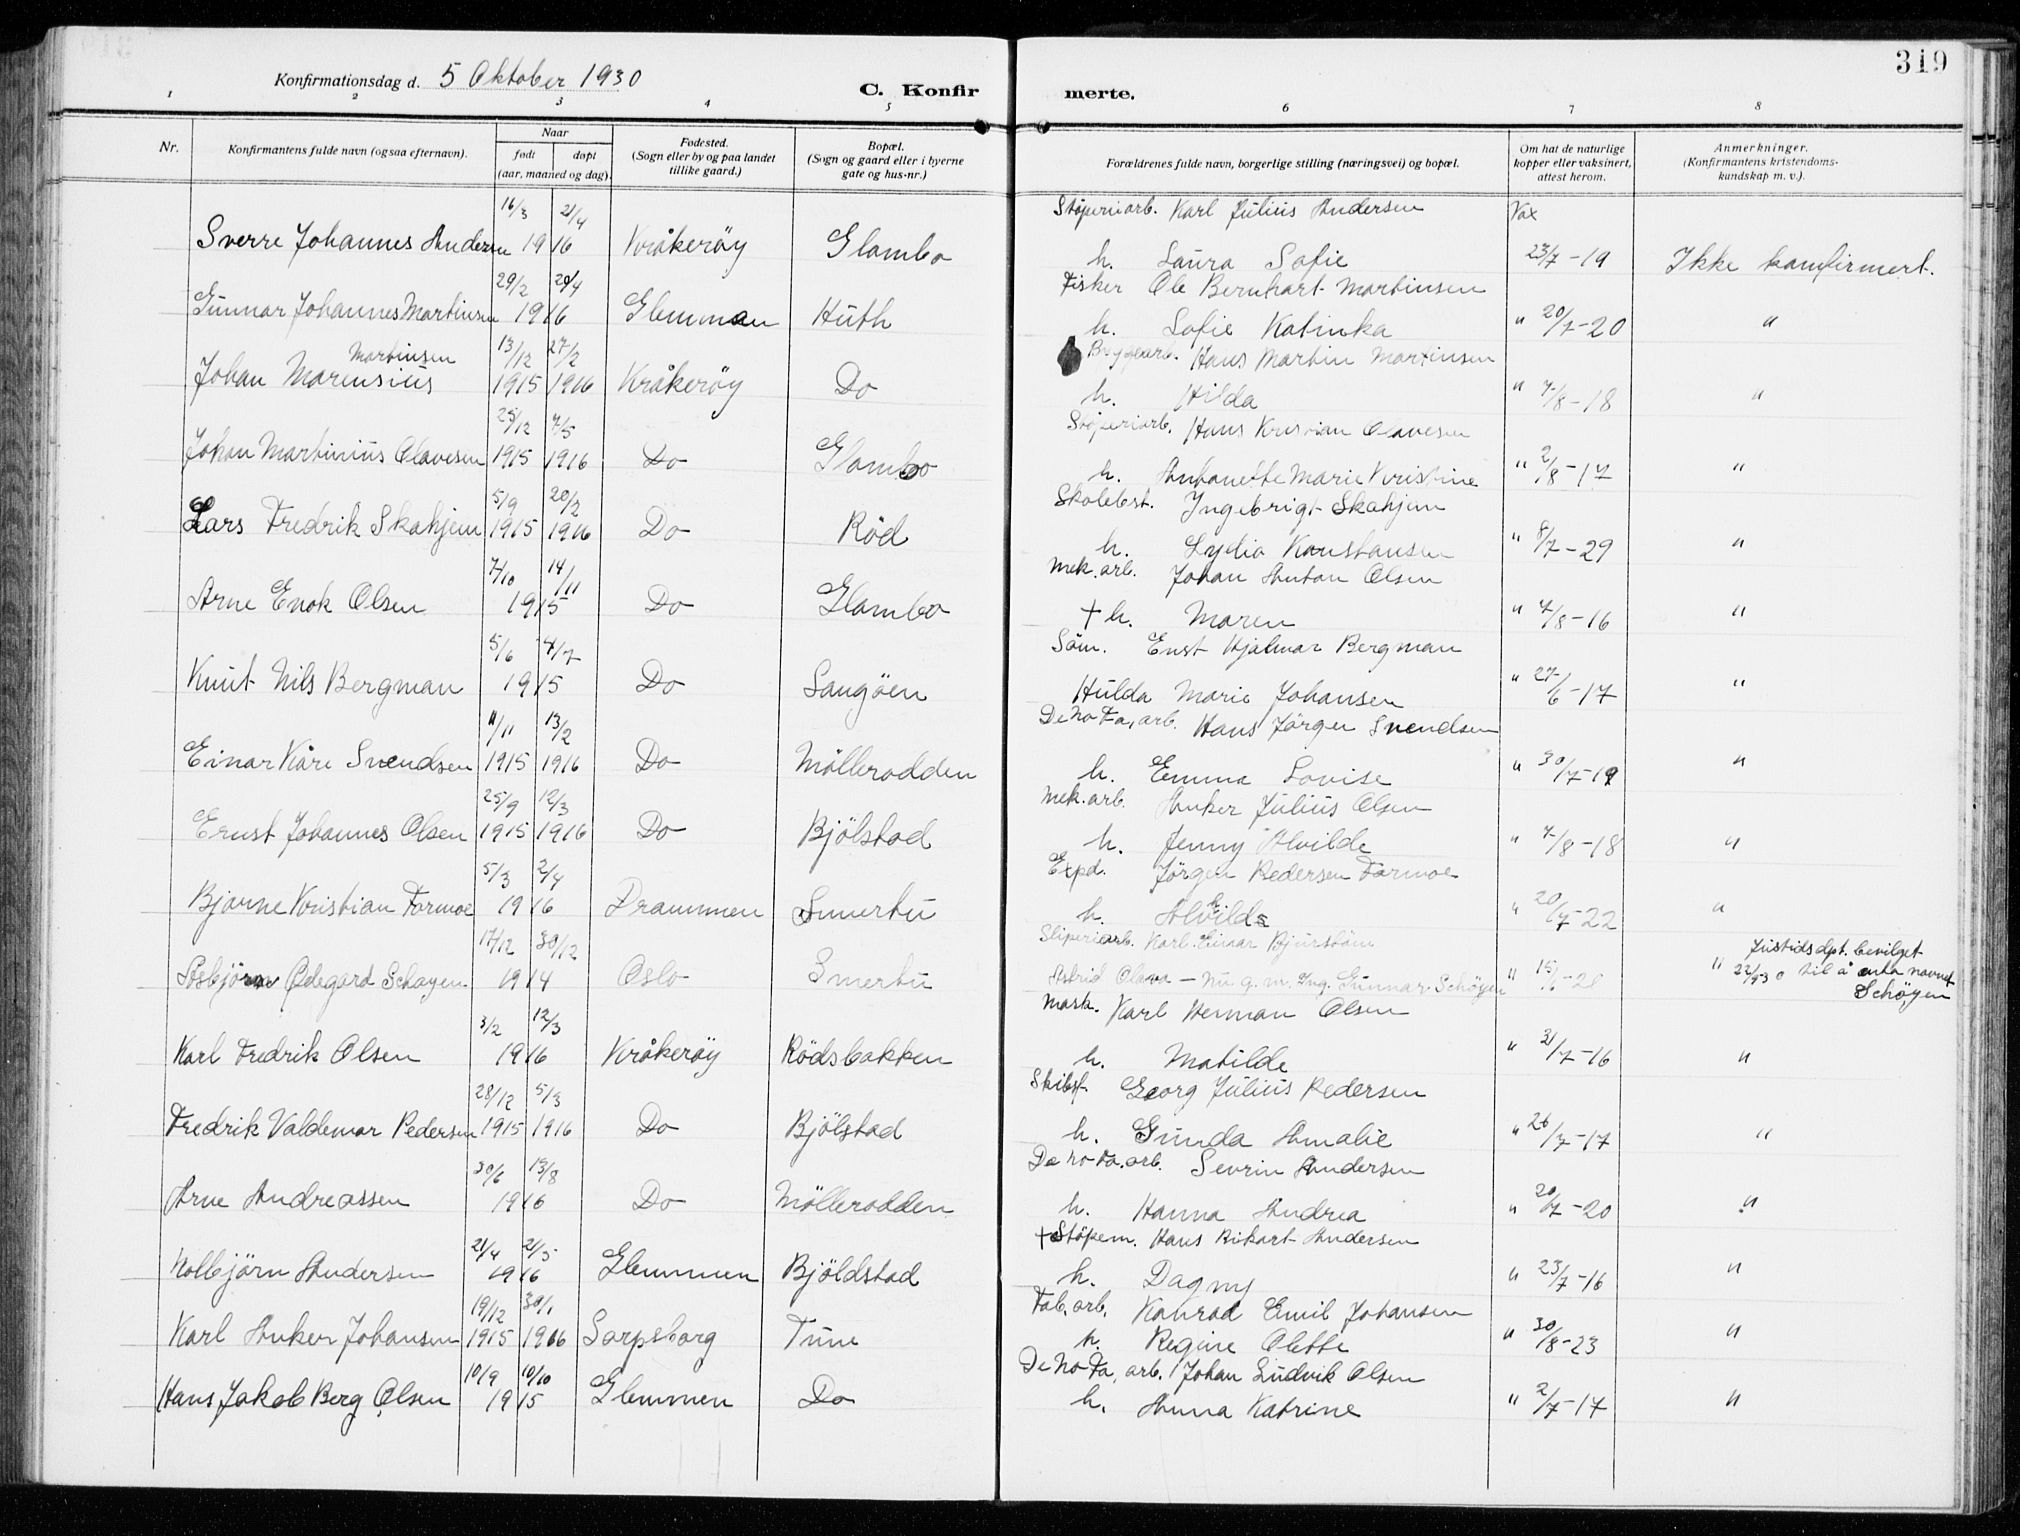 319
Konfirmationsdag d. 5 Oktober 1930
C. Konfirmerte.
1 2 3 4 5 6 7 8
Nr.
Konfirmantens fulde navn (ogsaa efternavn).
Naar
født døpt
(aar, maaned og dag).
Fødested.
(Sogn eller by og paa landet
tillike gaard.)
Bopæl.
(Sogn og gaard eller i byerne
gate og hus-nr.)
Forældrenes fulde navn, borgerlige stilling (næringsvei) og bopæl.
Om hat de naturlige
kopper eller vaksinert,
attest herom.
Anmerkninger.
(Konfirmantens kristendoms-
kundskap m. v.).
16/3 21/4 Støperiarb. Karl Julius Andersen Vax
Sverre Johannes Andersen 1916 Kråkerøy Glombo h. Laura Sofie 23/7-19 Ikke konfirmert.
29/2 24/4 Fisker Ole Bernhart Martinsen
Gunnar Johannes Martinsen 1916 Glemmen Huth h. Sofie Katinka " 20/7-20 "
Martinsen 13/12 27/2 Bryggearb. Hans Martin Martinsen
Johan Marensius 1915 1916 Kråkerøy Do h. Hilda " 7/8-18 "
25/12 7/5 Støperiarb. Hans Kristian Olavesen
Johan Martinius Olavesen 1915 1916 Do Glombo h. Antonette Marie Kristine " 2/8-17 "
5/9 20/2 Skolebest. Ingebrigt Skahjem
Lars Fredrik Skahjem 1915 1916 Do Rød h. Lydia Konstansen " 8/7-29 "
7/10 14/11 Mek. arb. Johan Anton Olsen
Arne Enok Olsen 1915 Do Glombo + h. Maren " 7/8-16 "
5/6 4/7 Søm. Ernst Hjalmar Bergman
Knut Nils Bergman 1915 Do Langøen Hulda Marie Johansen " 27/6-17 "
11/11 13/2 De No Fa, arb. Hans Jørgen Svendsen
Einar Kåre Svendsen 1915 1916 Do Møllerodden h. Emma Lovise " 30/7-19 "
25/9 12/3 Mek. arb. Anker Julius Olsen
Ernst Johannes Olsen 1915 1916 Do Bjölstad h. Jenny Alvilde " 7/8-18 "
5/3 2/4 Expd. Jørgen Pedersen Formoe
Bjarne Kristian Formoe 1916 Drammen Smertu h. Alvilde " 20/7-22 "
17/12 30/12 Sliperiarb. Karl Einar Bjurstöm Justisdpt. bevilget
Asbjørn Ødegard Schøyen 1914 Oslo Smertu Astrid Olava - nu g. m. Ing. Gunnar Schøyen " " til å anta navnet
Schöyen
3/2 12/3 Mask. Karl Herman Olsen
Karl Fredrik Olsen 1916 Kråkerøy Rödsbakken h. Matilde " 31/7-16 "
28/12 5/3 Skibsf. Georg Julius Pedersen
Fredrik Valdemar Pedersen 1915 1916 Do Bjölstad h. Gunda Amalie " 26/7-17 "
30/6 13/8 De No Fa. arb. Sevrin Andersen
Arne Andreassen 1916 Do Møllerodden h. Hanna Andrea " 20/7-20 "
21/4 21/5 + Støpem. Hans Rikart Andersen
Kolbjörn Andersen 1916 Glemmen Bjöldstad h. Dagny " 23/7-16 "
19/12 30/1 Fab. arb. Konrad Emil Johansen
Karl Anker Johansen 1915 1916 Sarpsborg Tune h. Regine Olette " 30/8-23 "
10/9 10/10 De No Fa, arb. Johan Ludvik Olsen
Hans Jakob Berg Olsen 1915 Glemmen Do h. Anna Katrine " 2/7-17 "